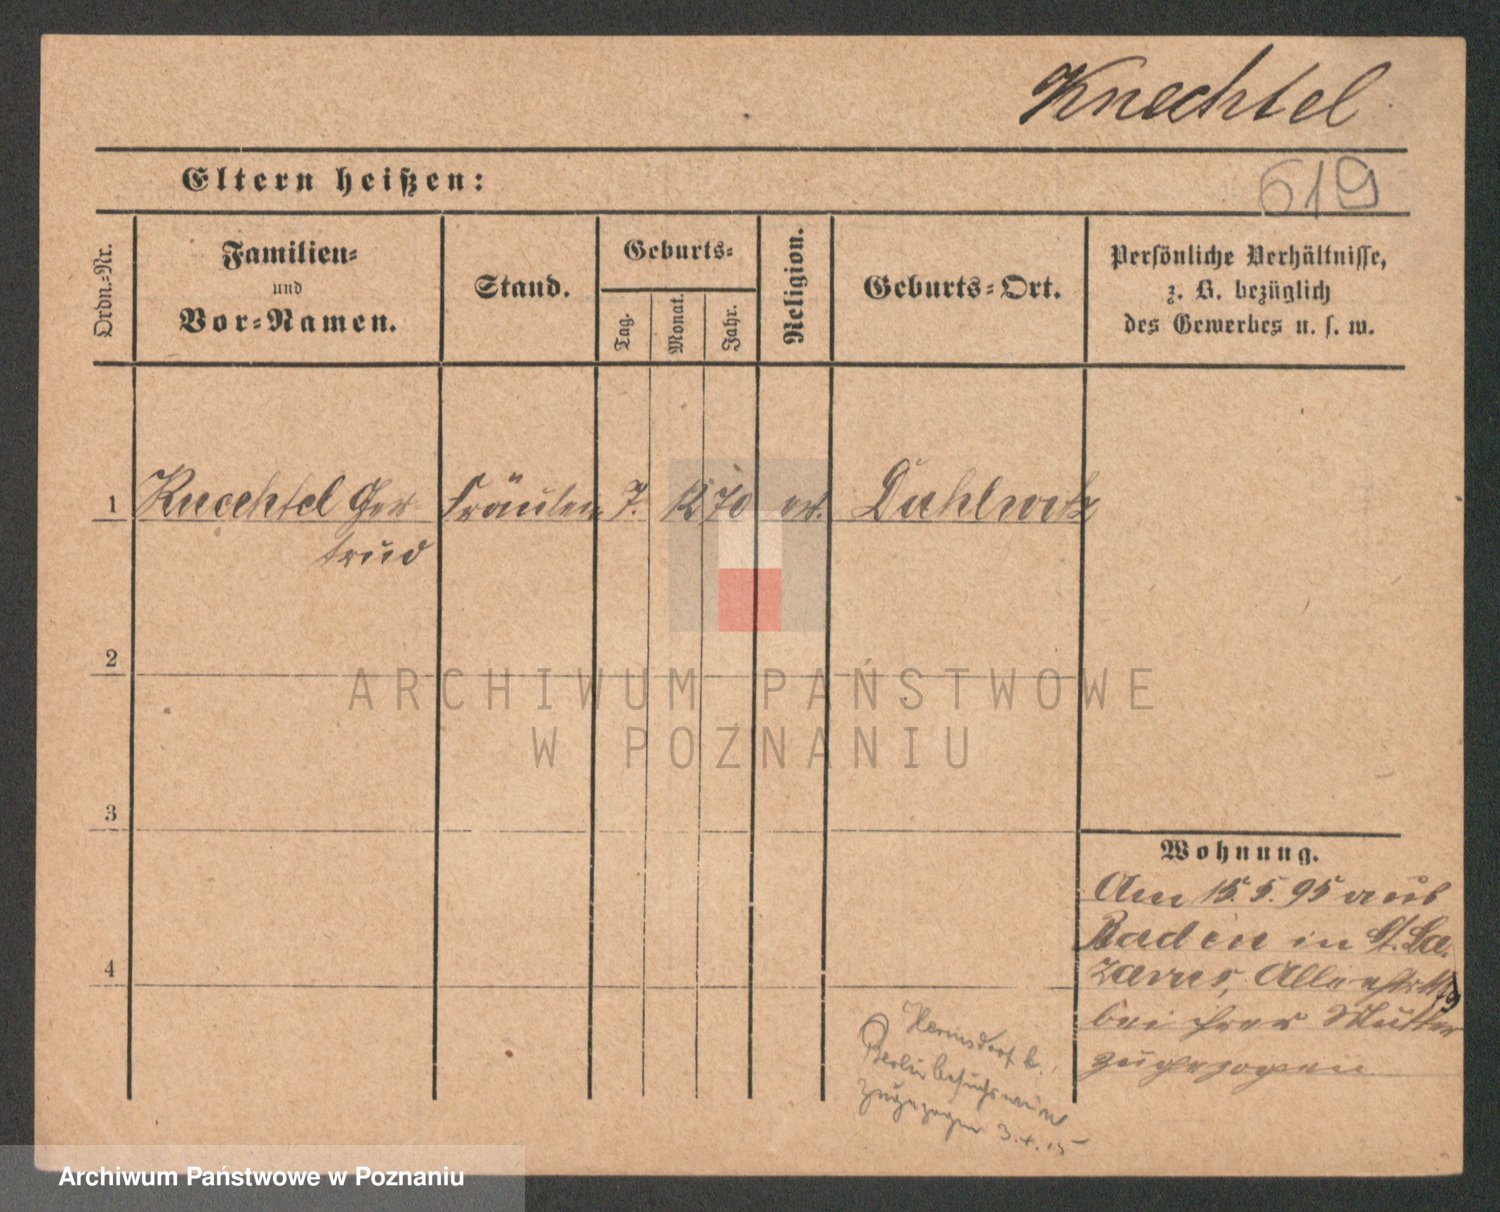 Knechtel
Eltern heißen:
619
Ordn.-Nr.
Familien-
und
Vor-Namen.
Stand.
Geburts-
Tag.
Monat.
Jahr.
Religion.
Geburts-Ort.
Persönliche Verhältnisse,
z. B. bezüglich
des Gewerbes u. s. w.
1 Knechtel Ger Fräulein 7. 12 70 ev.
trud
2
ARCHIWUM PAŃSTWOWE
W POZNANIU
3
Wohnung.
Am 15.5.95 aus
Baden in St. La-
zarus,
4
bei ihrer Mutter
zugezogen
Hermsdorf b.
Berlin besuchsweise
zugezogen 3.
Archiwum Państwowe w Poznaniu